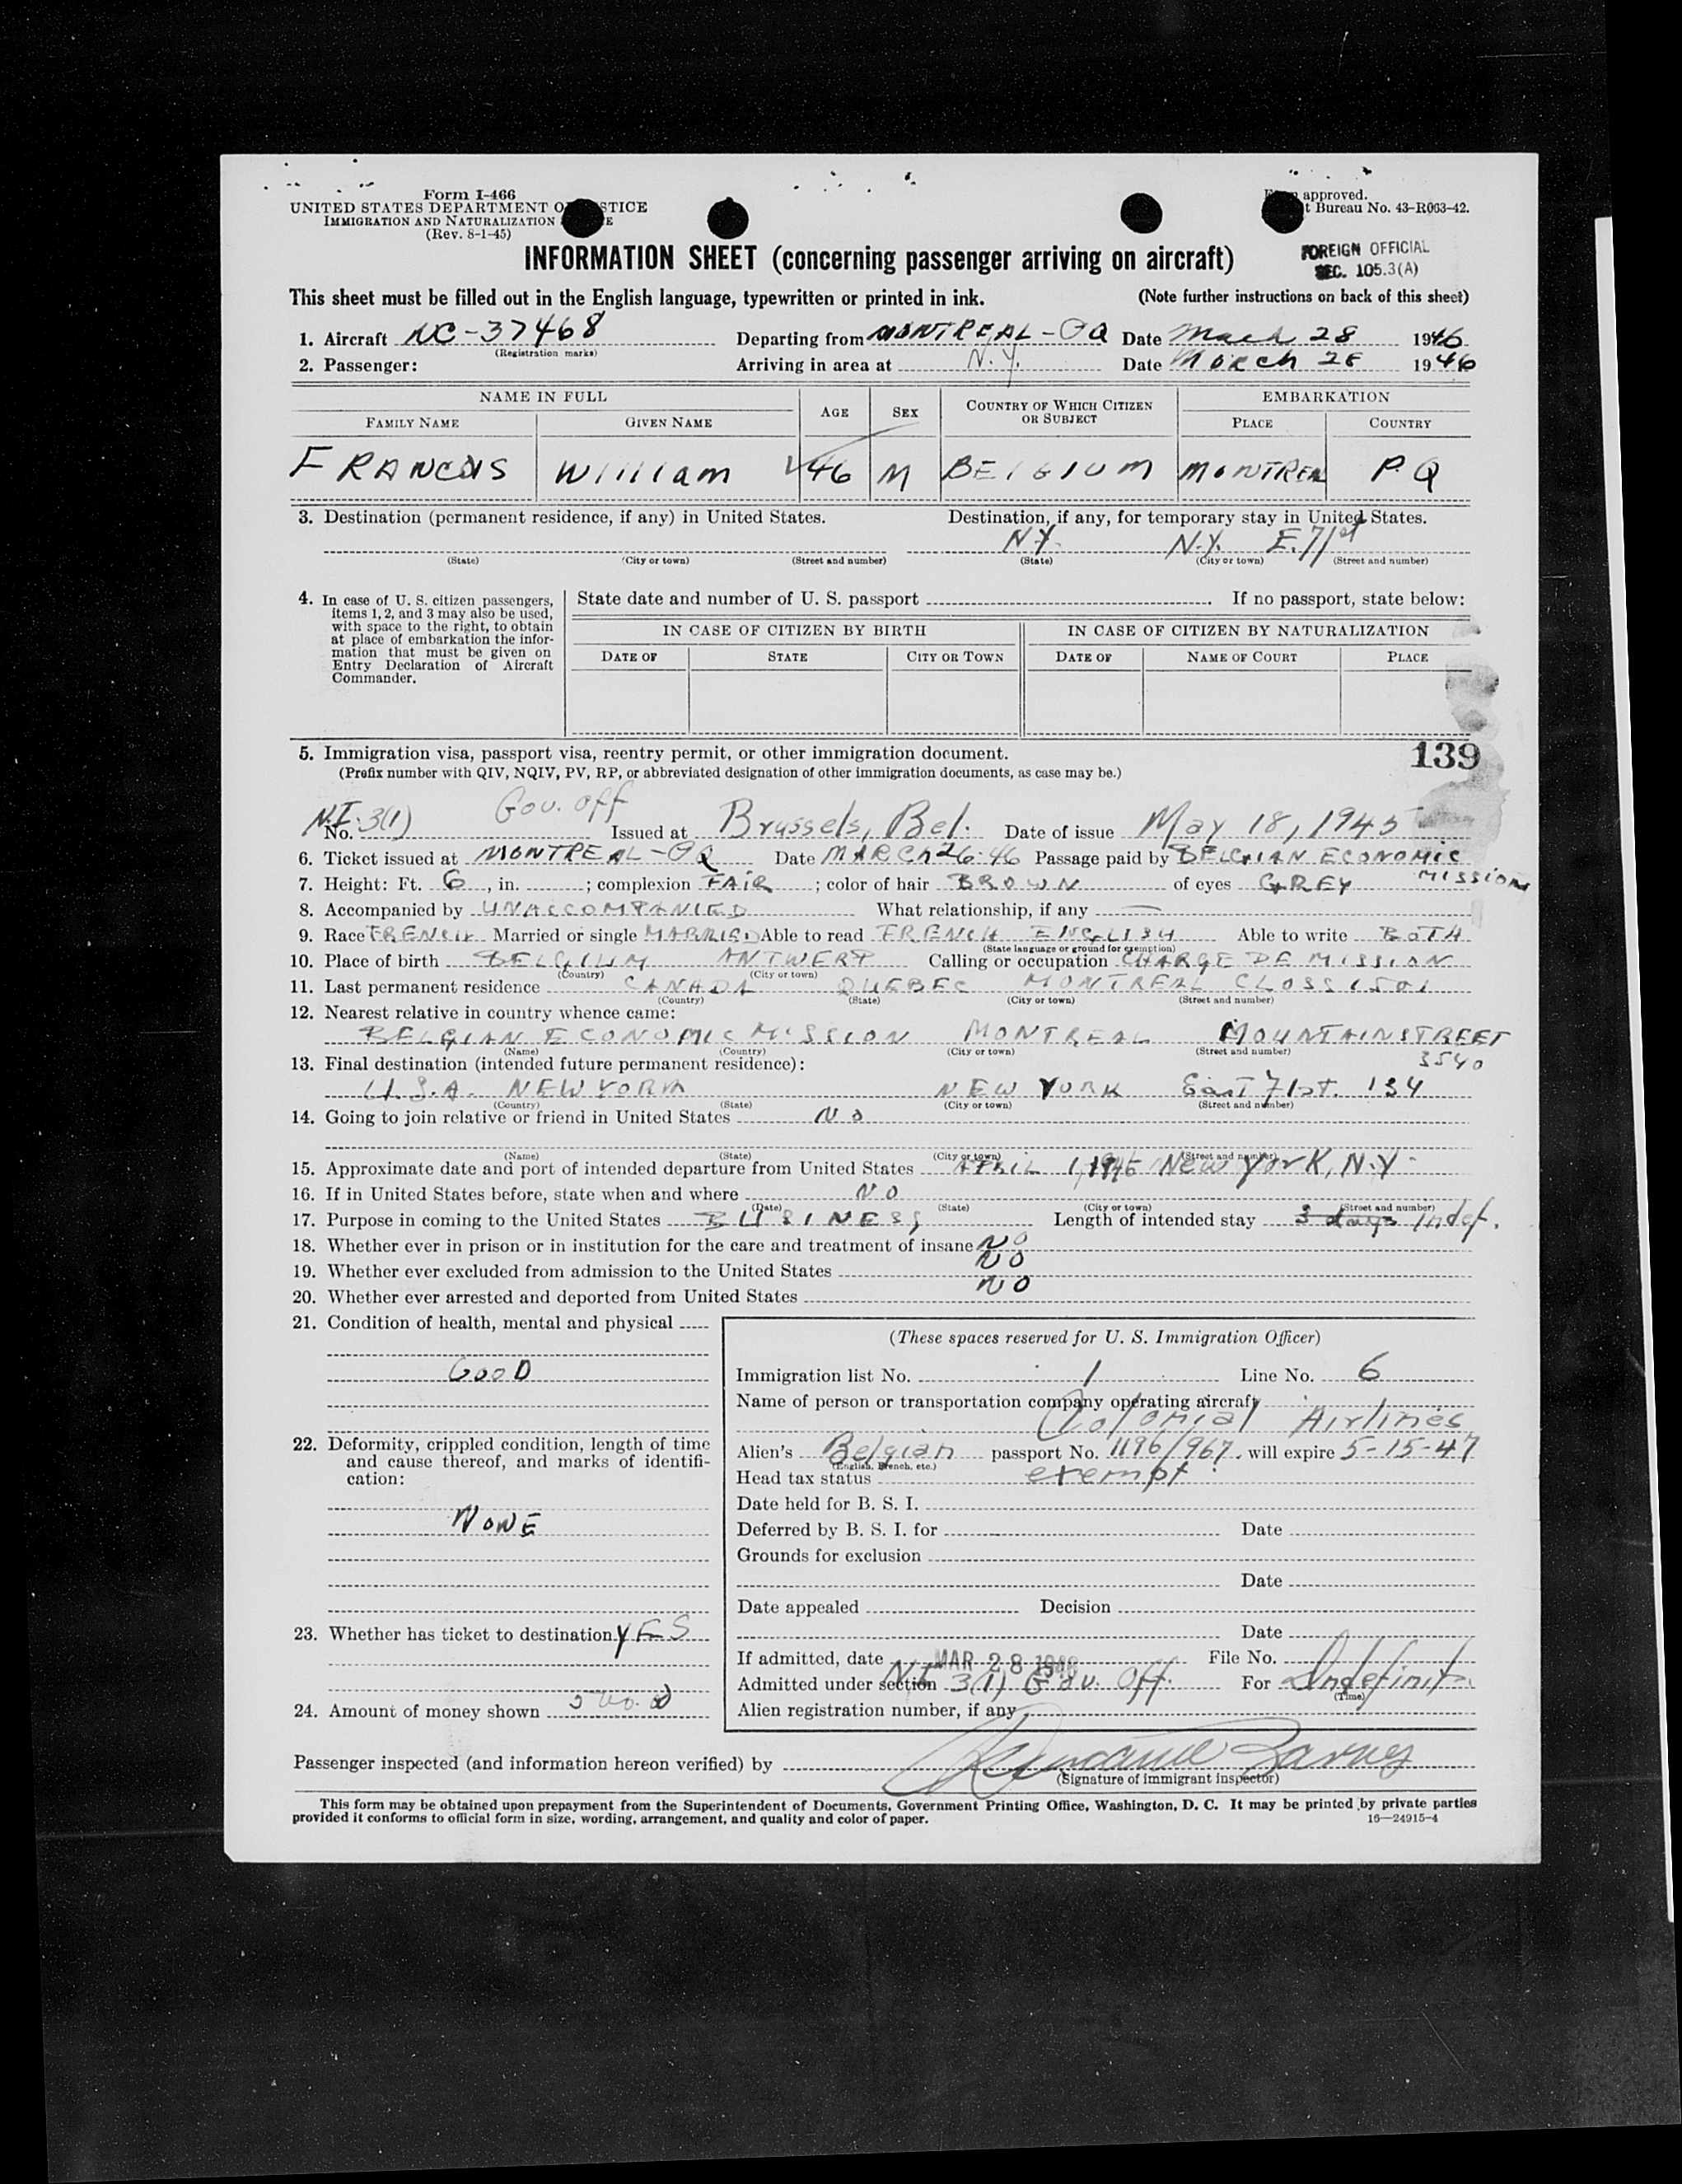 Form I-466
UNITED STATES DEPARTMENT OF JUSTICE
IMMIGRATION AND NATURALIZATION
(Rev. 8-1-45)
approved.
t Bureau No. 43-R063-42.
INFORMATION SHEET (concerning passenger arriving on aircraft)
FOREIGN OFFICIAL
SEC. 105.3(A)
This sheet must be filled out in the English language, typewritten or printed in ink. (Note further instructions on back of this sheet)
1. Aircraft NC-37468 Departing from MONTREAL - Date March 28 1946
(Registration marks)
2. Passenger: Arriving in area at N.Y. Date MARCH 28 1946
NAME IN FULL AGE SEX COUNTRY OF WHICH CITIZEN OR SUBJECT EMBARKATION
FAMILY NAME GIVEN NAME PLACE COUNTRY
FRANCOIS William 46 M BELGIUM MONTREAL P Q
3. Destination (permanent residence, if any) in United States. Destination, if any, for temporary stay in United States.
N.Y. N.Y. E. 71st
(State) (City or town) (Street and number) (State) (City or town) (Street and number)
4. In case of U. S. citizen passengers, items 1, 2, and 3 may also be used, with space to the right, to obtain at place of embarkation the information that must be given on Entry Declaration of Aircraft Commander.
State date and number of U. S. passport If no passport, state below:
IN CASE OF CITIZEN BY BIRTH IN CASE OF CITIZEN BY NATURALIZATION
DATE OF STATE CITY OR TOWN DATE OF NAME OF COURT PLACE
5. Immigration visa, passport visa, reentry permit, or other immigration document. 139
(Prefix number with QIV, NQIV, PV, RP, or abbreviated designation of other immigration documents, as case may be.)
No. N.I. 3(1) Gov. off Issued at Brussels, Bel. Date of issue May 18, 1945
6. Ticket issued at MONTREAL - Date MARCH 26.46 Passage paid by BELGIAN ECONOMIC MISSION
7. Height: Ft. 6, in. ; complexion FAIR ; color of hair BROWN of eyes GREY
8. Accompanied by UNACCOMPANIED What relationship, if any —
9. Race FRENCH Married or single MARRIED Able to read FRENCH ENGLISH Able to write BOTH
(State language or ground for exemption)
10. Place of birth BELGIUM ANTWERP Calling or occupation CHARGE DE MISSION
(Country) (City or town)
11. Last permanent residence CANADA QUEBEC MONTREAL CLOSSE 1501
(Country) (State) (City or town) (Street and number)
12. Nearest relative in country whence came:
BELGIAN ECONOMIC MISSION MONTREAL MOUNTAIN STREET 3540
(Name) (Country) (City or town) (Street and number)
13. Final destination (intended future permanent residence):
U.S.A. NEW YORK NEW YORK East 71st. 134
(Country) (State) (City or town) (Street and number)
14. Going to join relative or friend in United States NO
(Name) (State) (City or town) (Street and number)
15. Approximate date and port of intended departure from United States APRIL 1, 1946 New York, N.Y.
16. If in United States before, state when and where NO
(Date) (State) (City or town) (Street and number)
17. Purpose in coming to the United States BUSINESS Length of intended stay 3 days Indef.
18. Whether ever in prison or in institution for the care and treatment of insane NO
19. Whether ever excluded from admission to the United States NO
20. Whether ever arrested and deported from United States NO
21. Condition of health, mental and physical
GOOD
22. Deformity, crippled condition, length of time and cause thereof, and marks of identification:
NONE
23. Whether has ticket to destination YES
24. Amount of money shown
(These spaces reserved for U. S. Immigration Officer)
Immigration list No. 1 Line No. 6
Name of person or transportation company operating aircraft
Colonial Airlines
Alien's Belgian passport No. 1196/967. will expire 5-15-47
(English, French, etc.)
Head tax status exempt
Date held for B. S. I.
Deferred by B. S. I. for Date
Grounds for exclusion
Date
Date appealed Decision
Date
If admitted, date MAR 28 1946 File No.
Admitted under section NI 3(1) Gov. Off. For Indefinite
(Time)
Alien registration number, if any
Passenger inspected (and information hereon verified) by
(Signature of immigrant inspector)
This form may be obtained upon prepayment from the Superintendent of Documents, Government Printing Office, Washington, D. C. It may be printed by private parties
provided it conforms to official form in size, wording, arrangement, and quality and color of paper. 16—24915-4